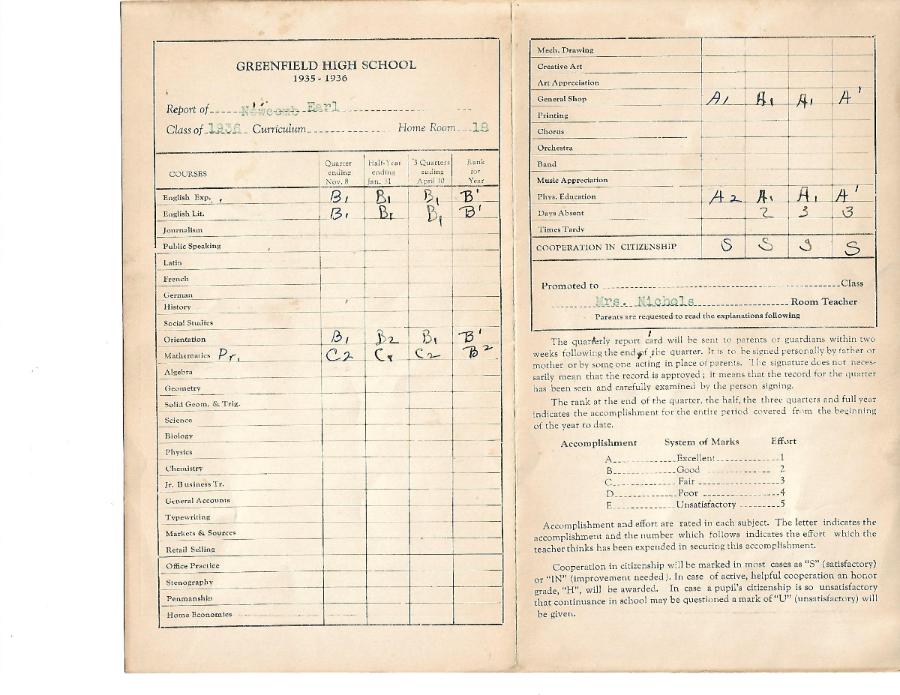 GREENFIELD HIGH SCHOOL
1935 - 1936
Report of Newcomb Earl
Class of 1936 Curriculum Home Room 18
COURSES Quarter ending Nov. 8 Half-Year ending Jan. 31 3 Quarters ending April 10 Rank for Year
English Exp. B1 B1 B1 B1
English Lit. B1 B1 B1 B1
Journalism
Public Speaking
Latin
French
German
History
Social Studies
Orientation B1 B2 B1 B1
Mathematics Pr. C2 C1 C2 B2
Algebra
Geometry
Solid Geom. & Trig.
Science
Biology
Physics
Chemistry
Jr. Business Tr.
General Accounts
Typewriting
Markets & Sources
Retail Selling
Office Practice
Stenography
Penmanship
Home Economics
Mech. Drawing
Creative Art
Art Appreciation
General Shop A1 A1 A1 A1
Printing
Chorus
Orchestra
Band
Music Appreciation
Phys. Education A2 A1 A1 A1
Days Absent 2 3 3
Times Tardy
COOPERATION IN CITIZENSHIP S S S S
Promoted to Class
Mrs. Nichols Room Teacher
Parents are requested to read the explanations following
The quarterly report card will be sent to parents or guardians within two
weeks following the end of the quarter. It is to be signed personally by father or
mother or by some one acting in place of parents. The signature does not neces-
sarily mean that the record is approved; it means that the record for the quarter
has been seen and carefully examined by the person signing.
The rank at the end of the quarter, the half, the three quarters and full year
indicates the accomplishment for the entire period covered from the beginning
of the year to date.
Accomplishment System of Marks Effort
A Excellent 1
B Good 2
C Fair 3
D Poor 4
E Unsatisfactory 5
Accomplishment and effort are rated in each subject. The letter indicates the
accomplishment and the number which follows indicates the effort which the
teacher thinks has been expended in securing this accomplishment.
Cooperation in citizenship will be marked in most cases as "S" (satisfactory)
or "IN" (improvement needed). In case of active, helpful cooperation an honor
grade, "H", will be awarded. In case a pupil's citizenship is so unsatisfactory
that continuance in school may be questioned a mark of "U" (unsatisfactory) will
be given.